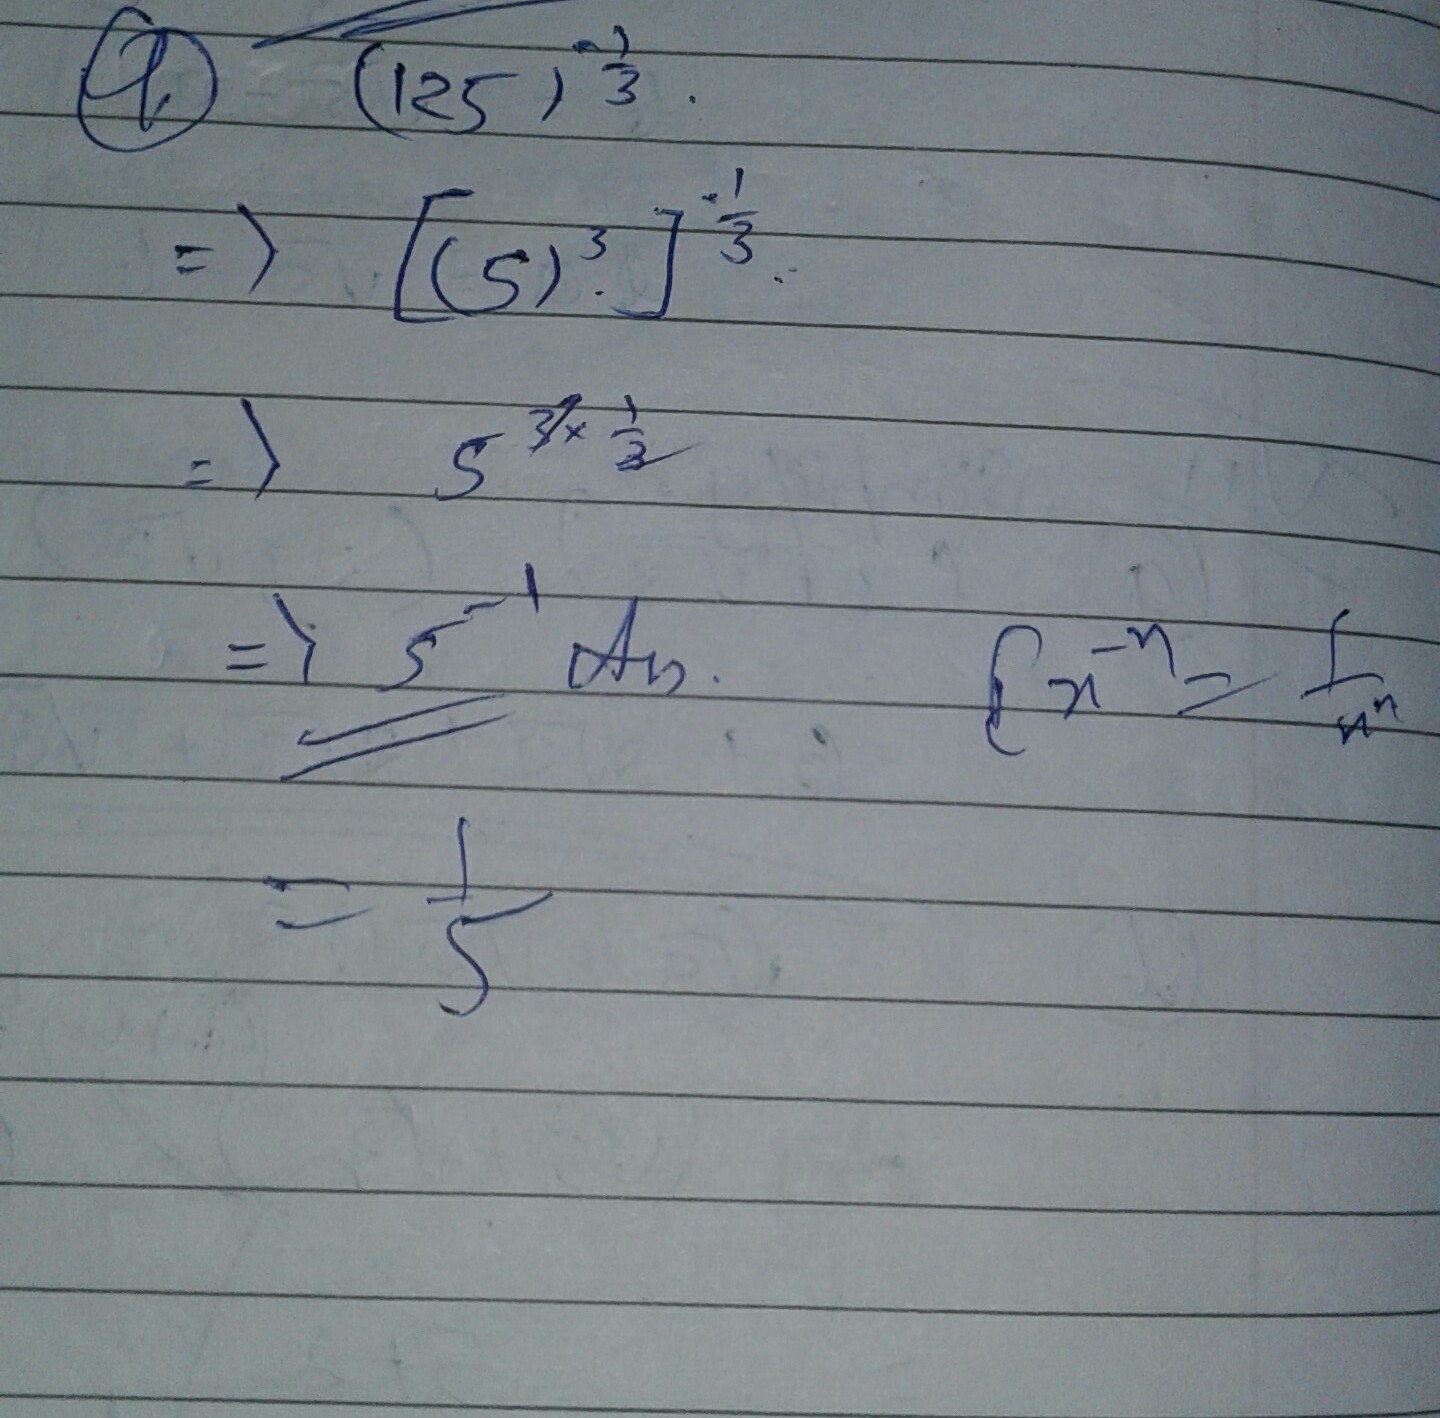 Q (125)^-1/3.
=> [(5)^3.]^-1/3.
=> 5^3× 1/3
=> 5^-1 Ans. {x^-n = 1/x^n
= 1/5